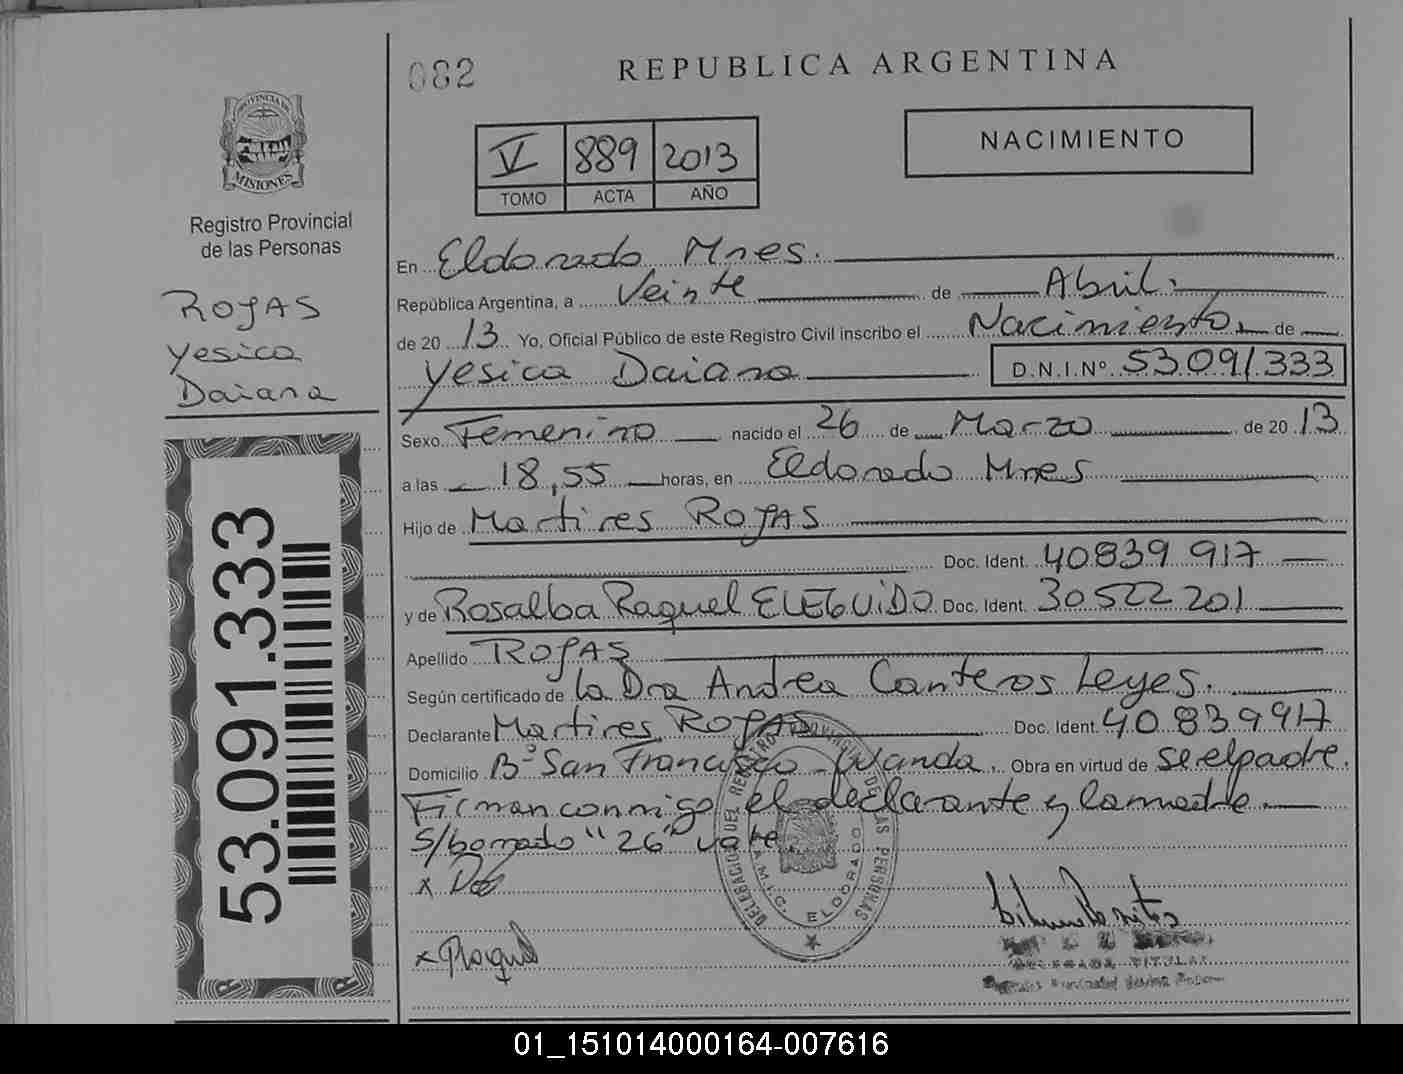 082
REPUBLICA ARGENTINA
PROVINCIA DE
MISIONES
Registro Provincial
de las Personas
V 889 2013
TOMO ACTA AÑO
NACIMIENTO
ROJAS
Yesica
Daiana
53.091.333
En Eldorado Mnes.
República Argentina, a Veinte de Abril.
de 20 13 Yo, Oficial Público de este Registro Civil inscribo el Nacimiento de
Yesica Daiana D.N.I.Nº 53.091.333
Sexo Femenino nacido el 26 de Marzo de 20 13
a las 18,55 horas, en Eldorado Mnes
Hijo de Martires ROJAS
Doc. Ident. 40839 917
y de Rosalba Raquel ELEGUIDO Doc. Ident. 30522201
Apellido ROJAS
Según certificado de la Dra Andrea Canteros Leyes.
Declarante Martires ROJAS Doc. Ident. 40.839917
Domicilio Bº San Francisco - Wanda. Obra en virtud de ser el padre.
Firman conmigo el declarante y la madre.
S/borrado "26" vale.
x
x Raquel
DELEGACION DEL REGISTRO PROVINCIAL DE LAS PERSONAS
ELDORADO
TITULAR
01_151014000164-007616